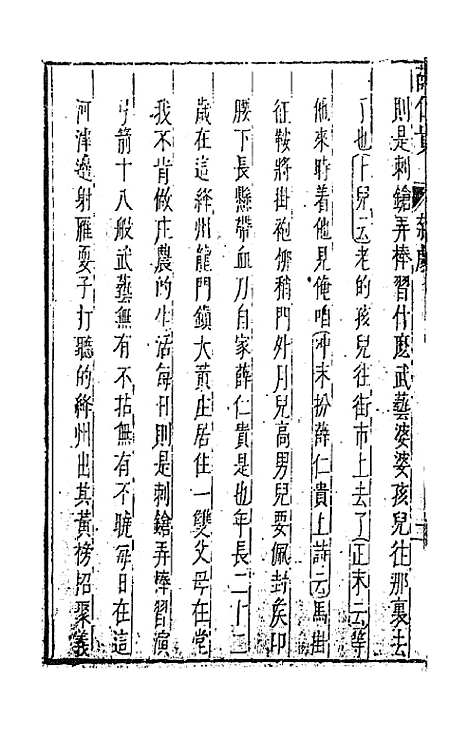 薛仁貴 雜劇
則是刺鎗弄棒習什麽武藝婆婆孩兒往那裏去
了也卜兒云老的孩兒往街市上去了正末云等
他來時着他見俺咱冲末扮薛仁貴上詩云馬掛
征鞍將掛袍柳稍門外月兒高男兒要佩封矦印
腰下長懸帶血刀自家薛仁貴是也年長二十二
歲在這絳州龍門鎮大黃庄居住一雙父母在堂
我不肯做庄農的生活每日則是刺鎗弄棒習演
弓箭十八般武藝無有不拈無有不曉每日在這
河津邊射雁耍子打聽的絳州出其黃榜招聚義